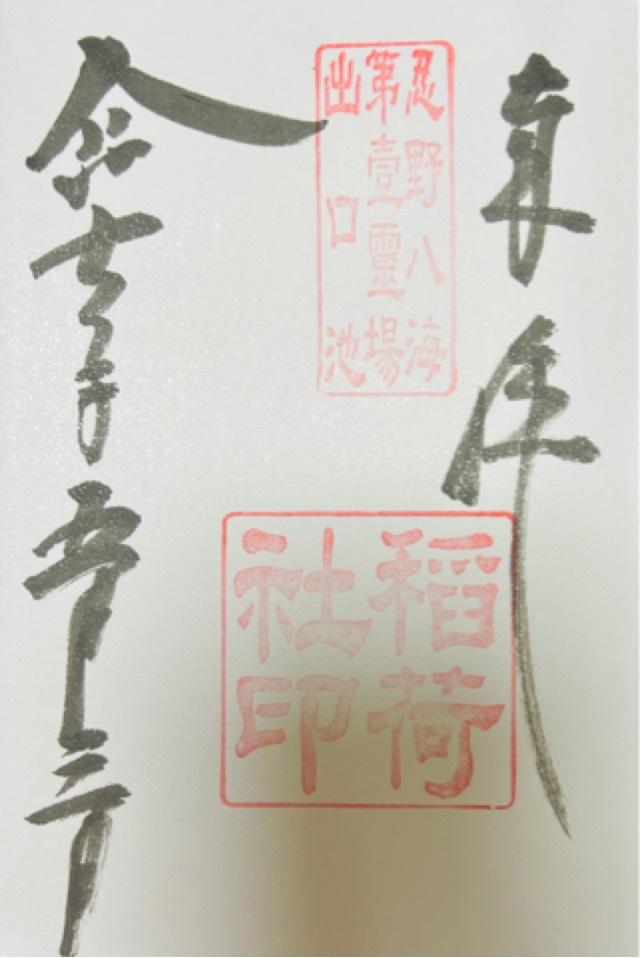 奉拝
忍野八海
第壹靈場
出口池
稲荷
社印
令和七年五月